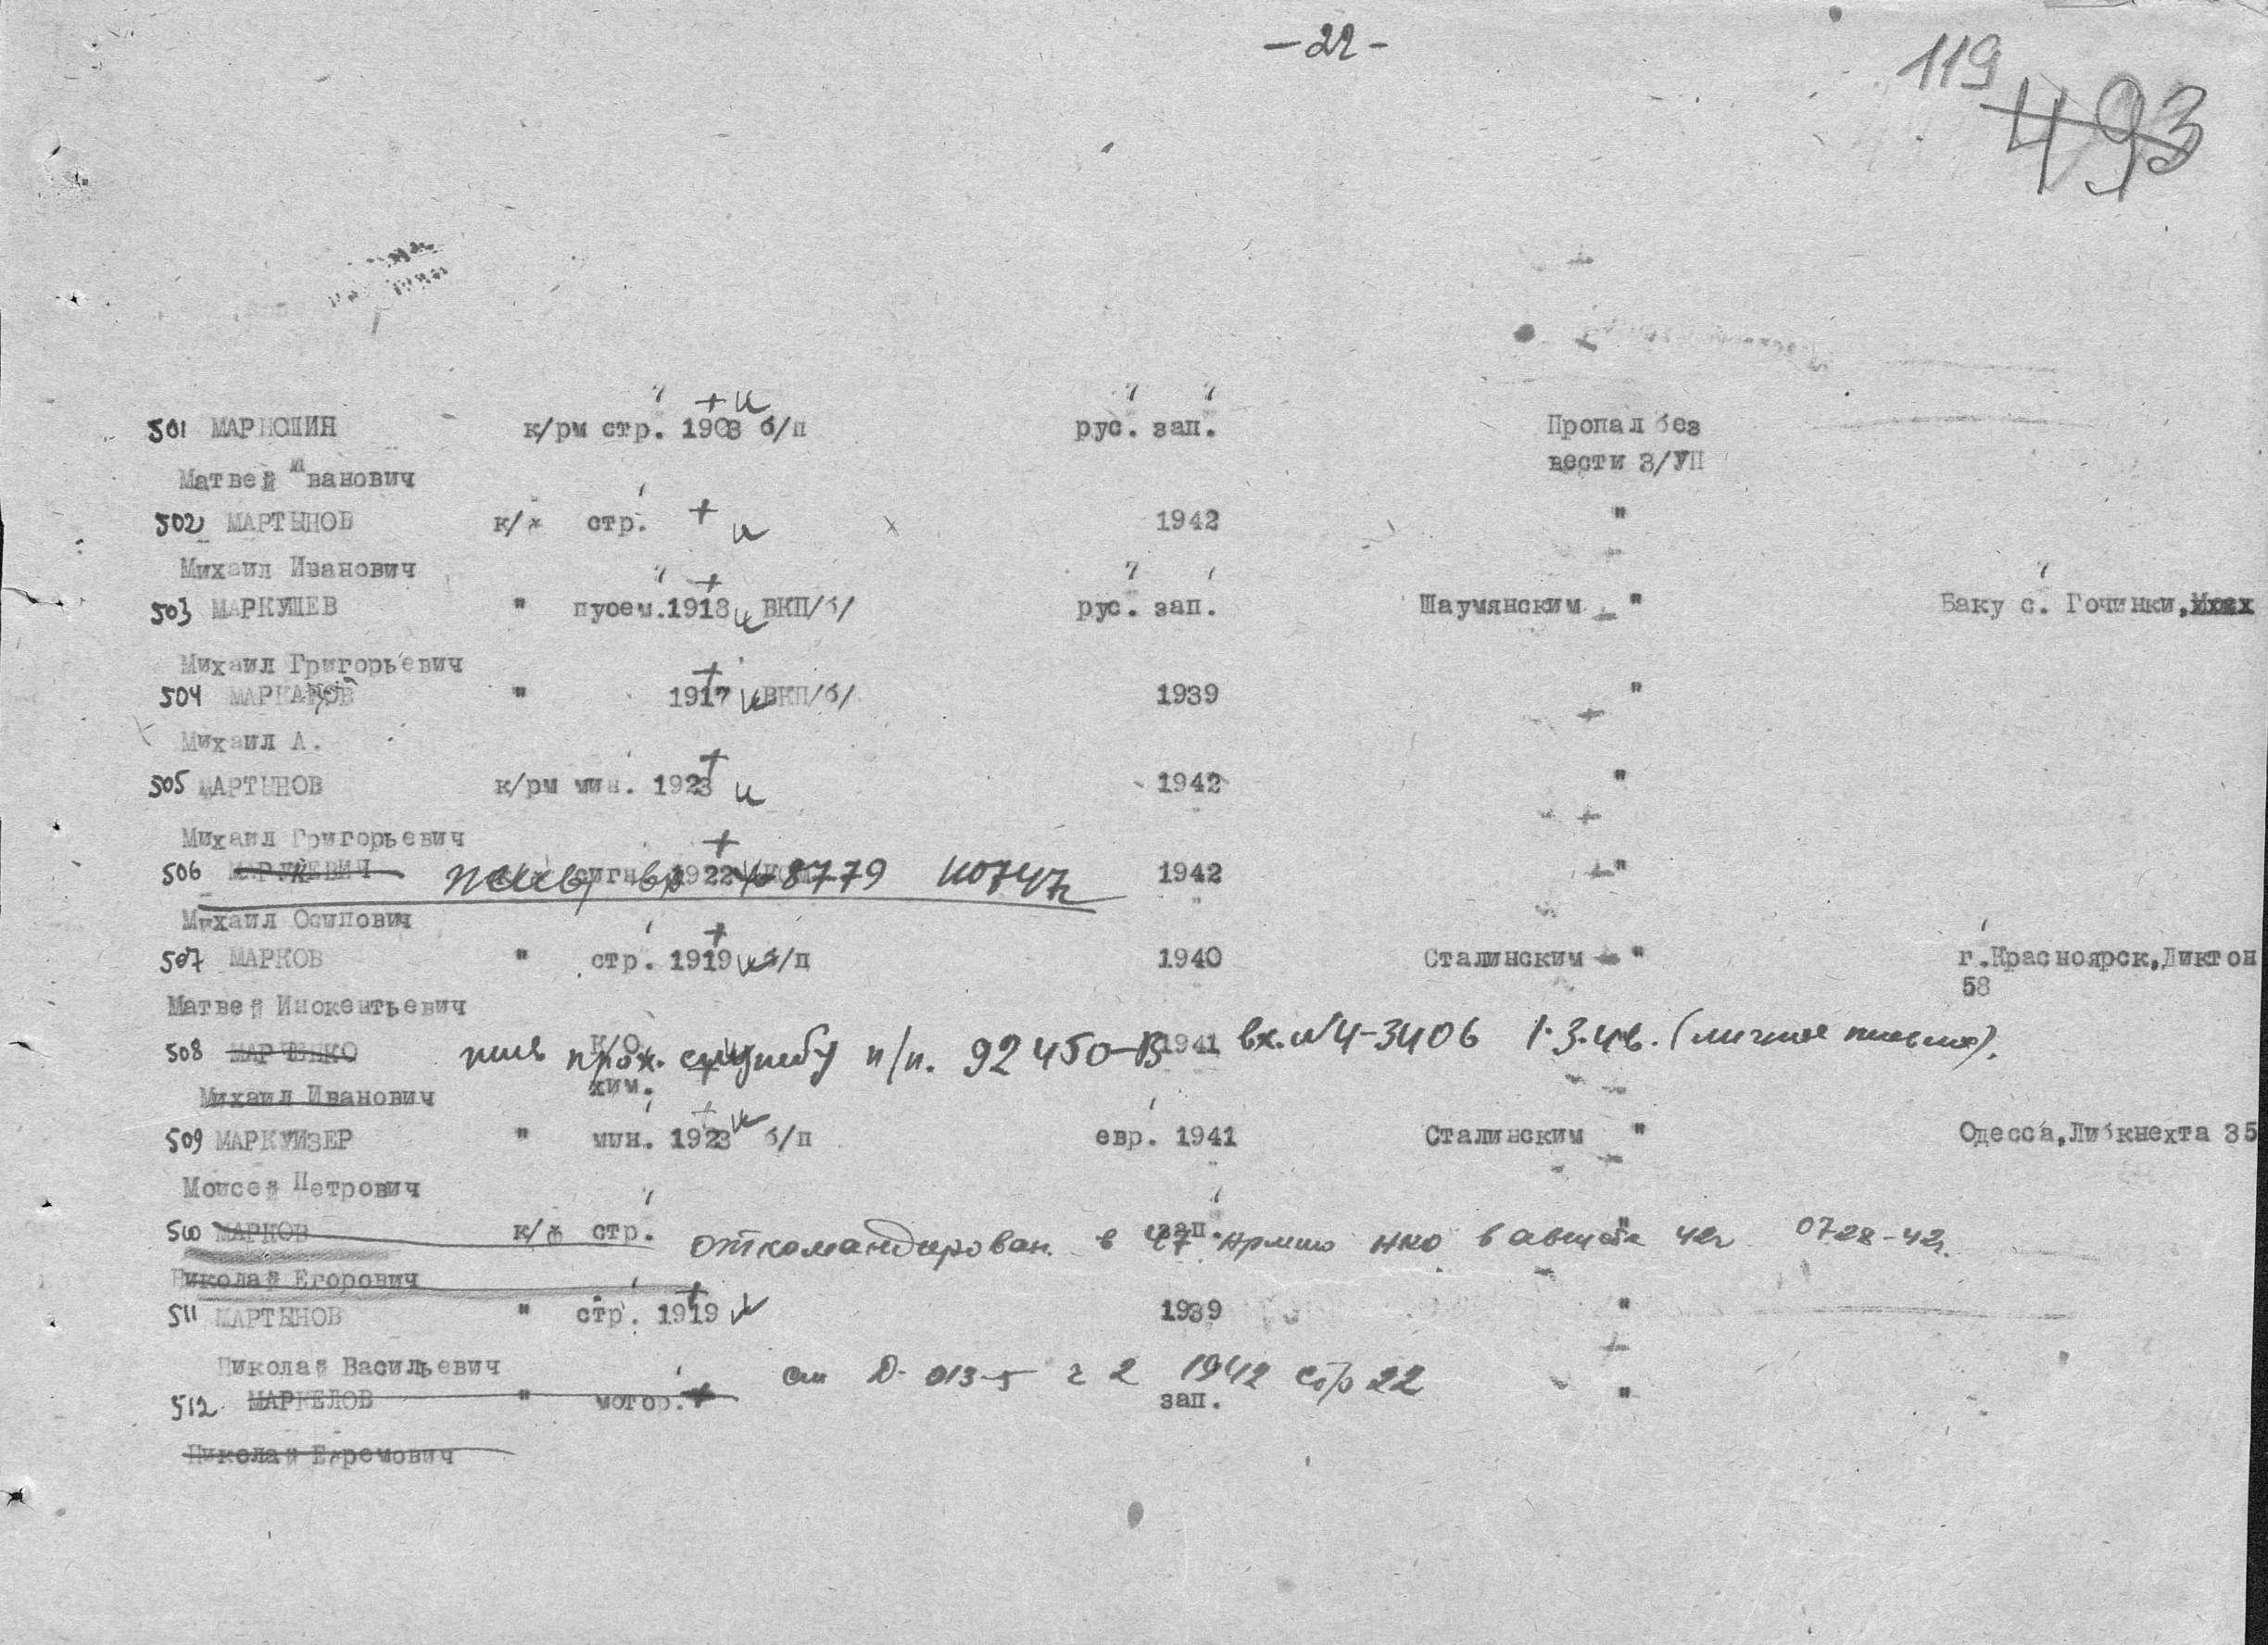 -22-
119
493
501 МАРМОЛИН к/рм стр. 1903 б/п рус. зап. Пропал без
вести З/УП
Матвей Иванович
502 МАРТЫНОВ к/ж стр. 1942 "
Михаил Иванович
503 МАРКУШЕВ " пуоем. 1918 ВКП/б/ рус. зап. Шаумянским " Баку с. Гочинки,
Михаил Григорьевич
504 " 1917 ВКП/б/ 1939 "
Михаил А.
505 МАРТЫНОВ к/рм мин. 1923 1942 "
Михаил Григорьевич
506 МАРУКЕВИЧ сигн. 1922 8779 1942 "
Михаил Осипович
507 МАРКОВ " стр. 1919 б/п 1940 Сталинским " г.Красноярск,Диктон
58
Матвей Инокентьевич
508 МАРЧЕНКО к/о прох. службу п/п. 92450-В 1941 вх.№4-3406 1.3.46. (личное письмо).
хим.
Михаил Иванович
509 МАРКУИЗЕР " мин. 1923 б/п евр. 1941 Сталинским " Одесса,Либкнехта 35
Моисей Петрович
510 МАРКОВ к/ф стр. откомандирован в 47 Армию НКО в августе 42г 0728-42г.
зап. "
Николай Егорович
511 МАРТЫНОВ " стр. 1919 1939 "
Николай Васильевич
см Д-013-5 г 2 1942 стр 22
512 МАРКЕЛОВ " мотор. зап. "
Николай Ефремович